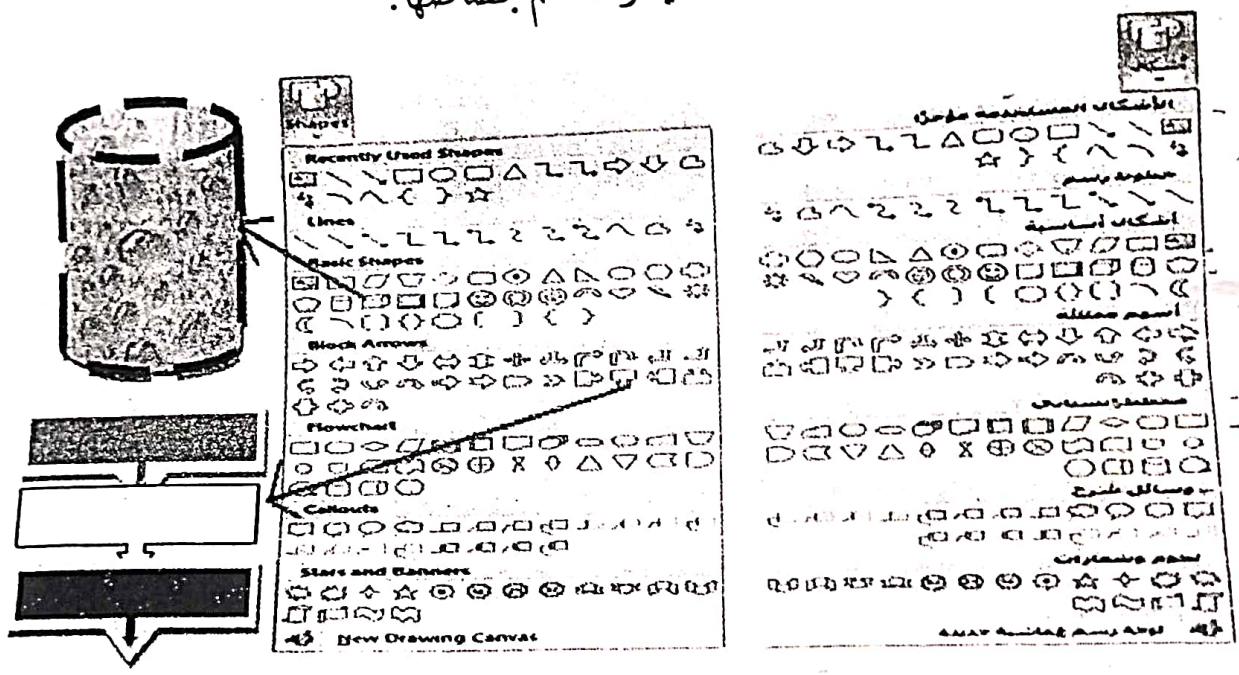 Shapes
Recently Used Shapes
Lines
Basic Shapes
Block Arrows
Flowchart
Callouts
Stars and Banners
New Drawing Canvas
الأشكال المستخدمة مؤخرًا
أشكال أساسية
أسهم ممتلئة
مخطط انسيابي
وسائل شرح
نجوم وشعارات
لوحة رسم